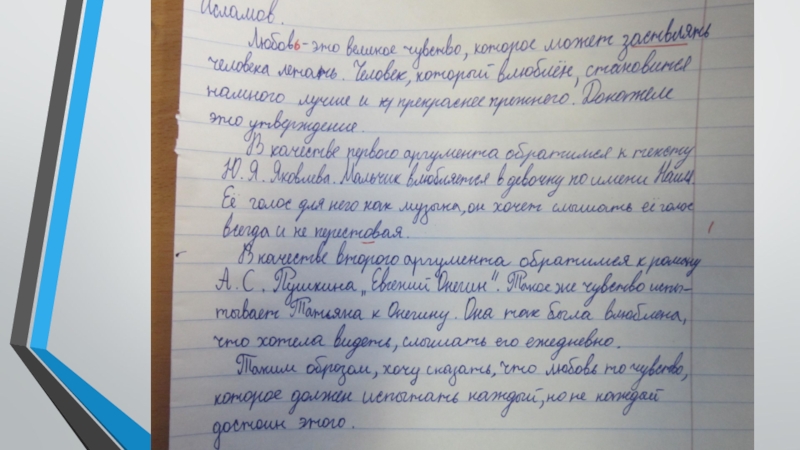 Исламов.
Любовь - это великое чувство, которое может заствлять
человека летать. Человек, который влюблён, становится
намного лучше и прекраснее прежнего. Докажем
это утверждение.
В качестве первого аргумента обратимся к тексту
Ю. Я. Яковлева. Мальчик влюбляется в девочку по имени
Её голос для него как музыка, он хочет слышать её голос
всегда и не перестовая.
В качестве второго аргумента обратимся к роману
А. С. Пушкина „Евгений Онегин". Такое же чувство испы-
тывает Татьяна к Онегину. Она так была влюблена,
что хотела видеть, слышать его ежедневно.
Таким образом, хочу сказать, что любовь то чувство,
которое должен испытать каждый, но не каждый
достоин этого.